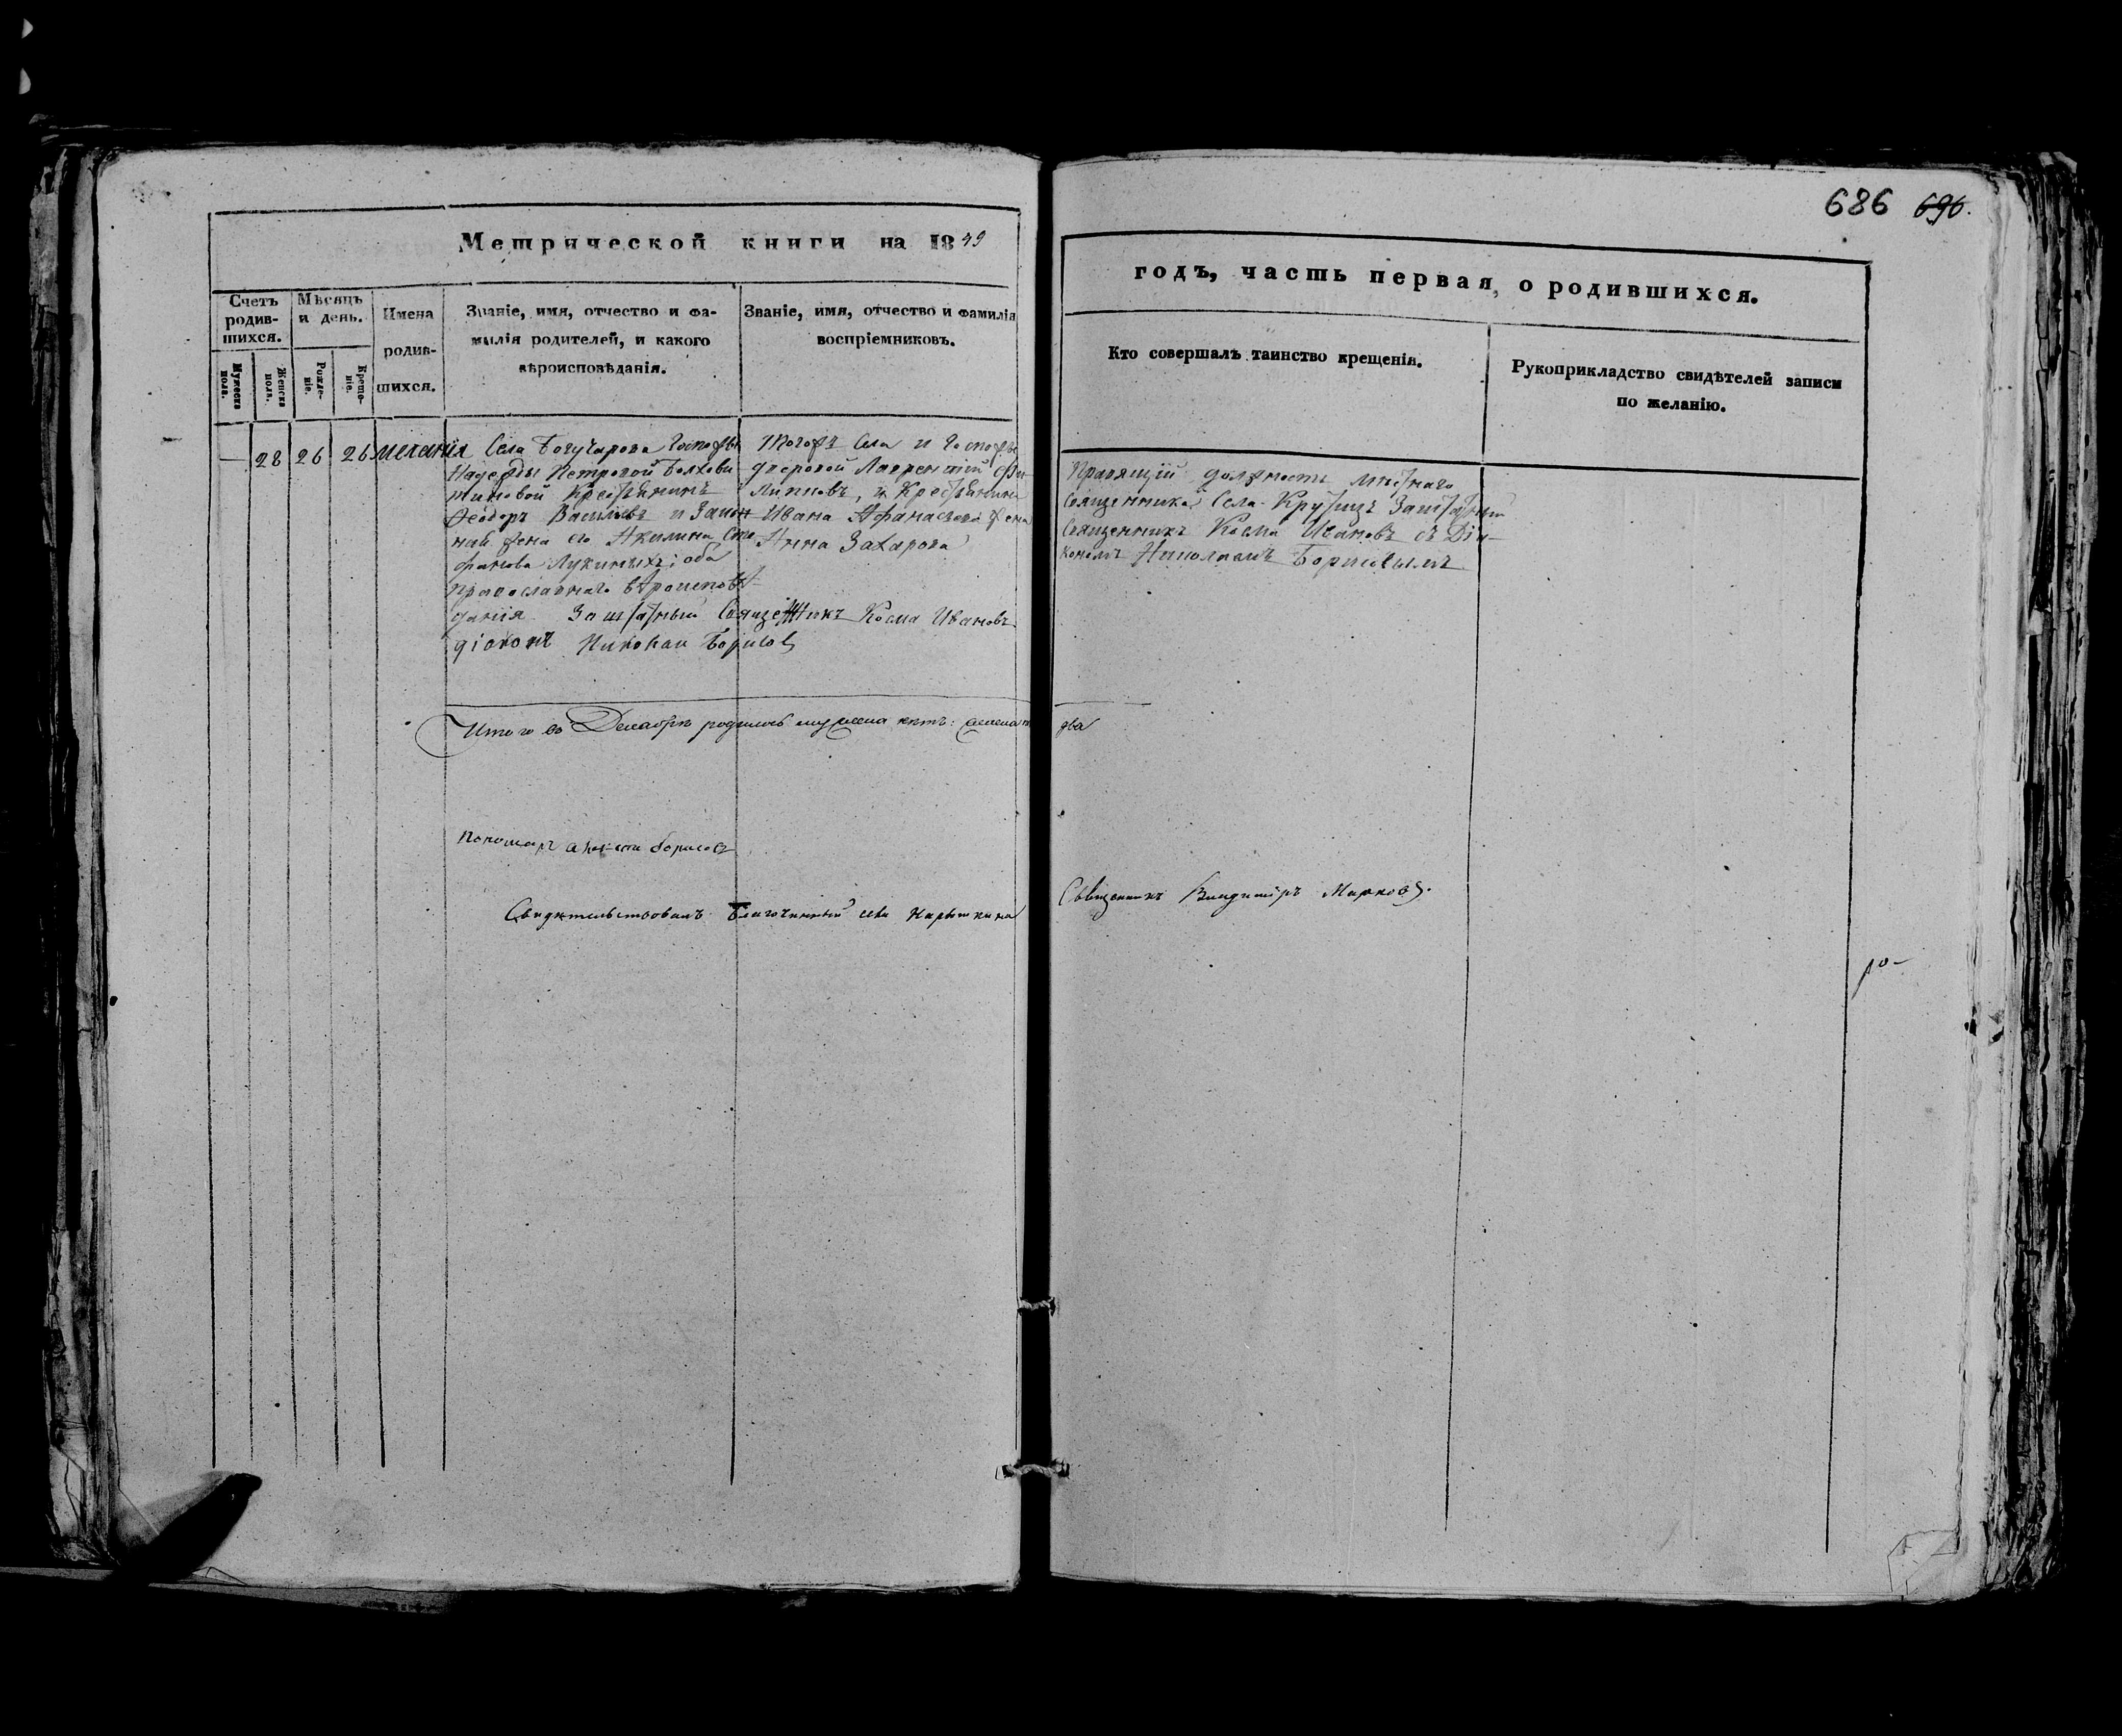 686 696.
Метрической книги на 1849
годъ, часть первая, о родившихся.
Счетъ родив-шихся.
Мужеска пола.
Женска пола.
Мѣсяцъ и день.
Рожде-ніе.
Креще-ніе.
Имена родив-шихся.
Званіе, имя, отчество и фа-
милія родителей, и какого
вѣроисповѣданія.
Званіе, имя, отчество и фамилія
воспріемниковъ.
Кто совершалъ таинство крещенія.
Рукоприкладство свидѣтелей записи
по желанію.
— 28 26 26 Меланія
Села Богучарова Госпожи
Надежды Петровой
Крестьянинъ
Феодоръ Васильевъ и Закон
ная жена его Акилина Сте
фанова оба
православнаго вѣроисповѣ
данія Заштатный Священникъ Косма Ивановъ
діаконъ Николай Борисовъ
Тогожъ Села и Госпожи
дворовой Лаврентій Фи
липповъ, и Крестьянина
Ивана Афанасьева жена
Анна Захарова
Правящій должность мѣстнаго
Священника Села Крутицъ Заштатный
Священникъ Косма Ивановъ съ Діа-
кономъ Николаемъ Борисовымъ
Итого въ Декабрѣ родилось мужеска нѣтъ: женска
два
Пономарь Борисовъ
Свидѣтельствовалъ Благочинный села Нарышкина
Священникъ Владиміръ Марковъ.
ро-